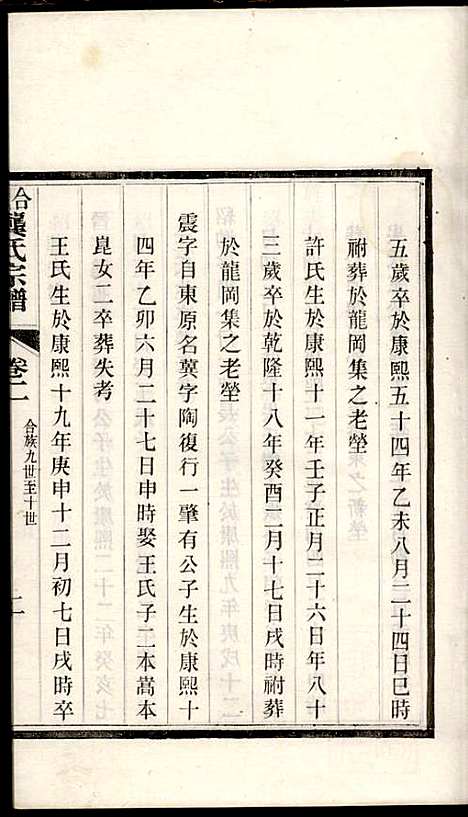 五歲卒於康熙五十四年乙未八月二十四日巳時
祔葬於龍岡集之老塋
許氏生於康熙十一年壬子正月二十六日年八十
三歲卒於乾隆十八年癸酉二月十七日戌時祔葬
於龍岡集之老塋
震字自東原名蓂字陶復行一肇有公子生於康熙十
四年乙卯六月二十七日申時娶王氏子二本嵩本
崑女二卒葬失考
王氏生於康熙十九年庚申十二月初七日戌時卒
合龔氏宗譜
卷二
合族九世至十世